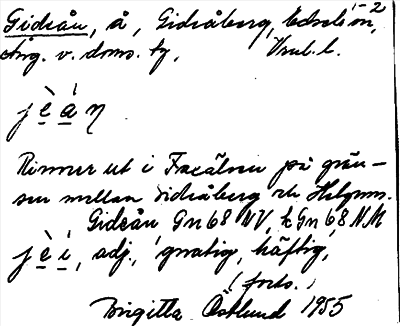 Gideån, å, Gideåberg, Edsele sn, 1-2
Ång. v. doms. tg, Vrul. l.
jèáŋ
Rinner ut i Faxälven på grän-
sen mellan Gideåberg och Helgum.
Gideån Gn 68 NV, k Gn 68 NM
jèi, adj., gnatig, häftig,
(forts.)
Birgitta Östlund 1955